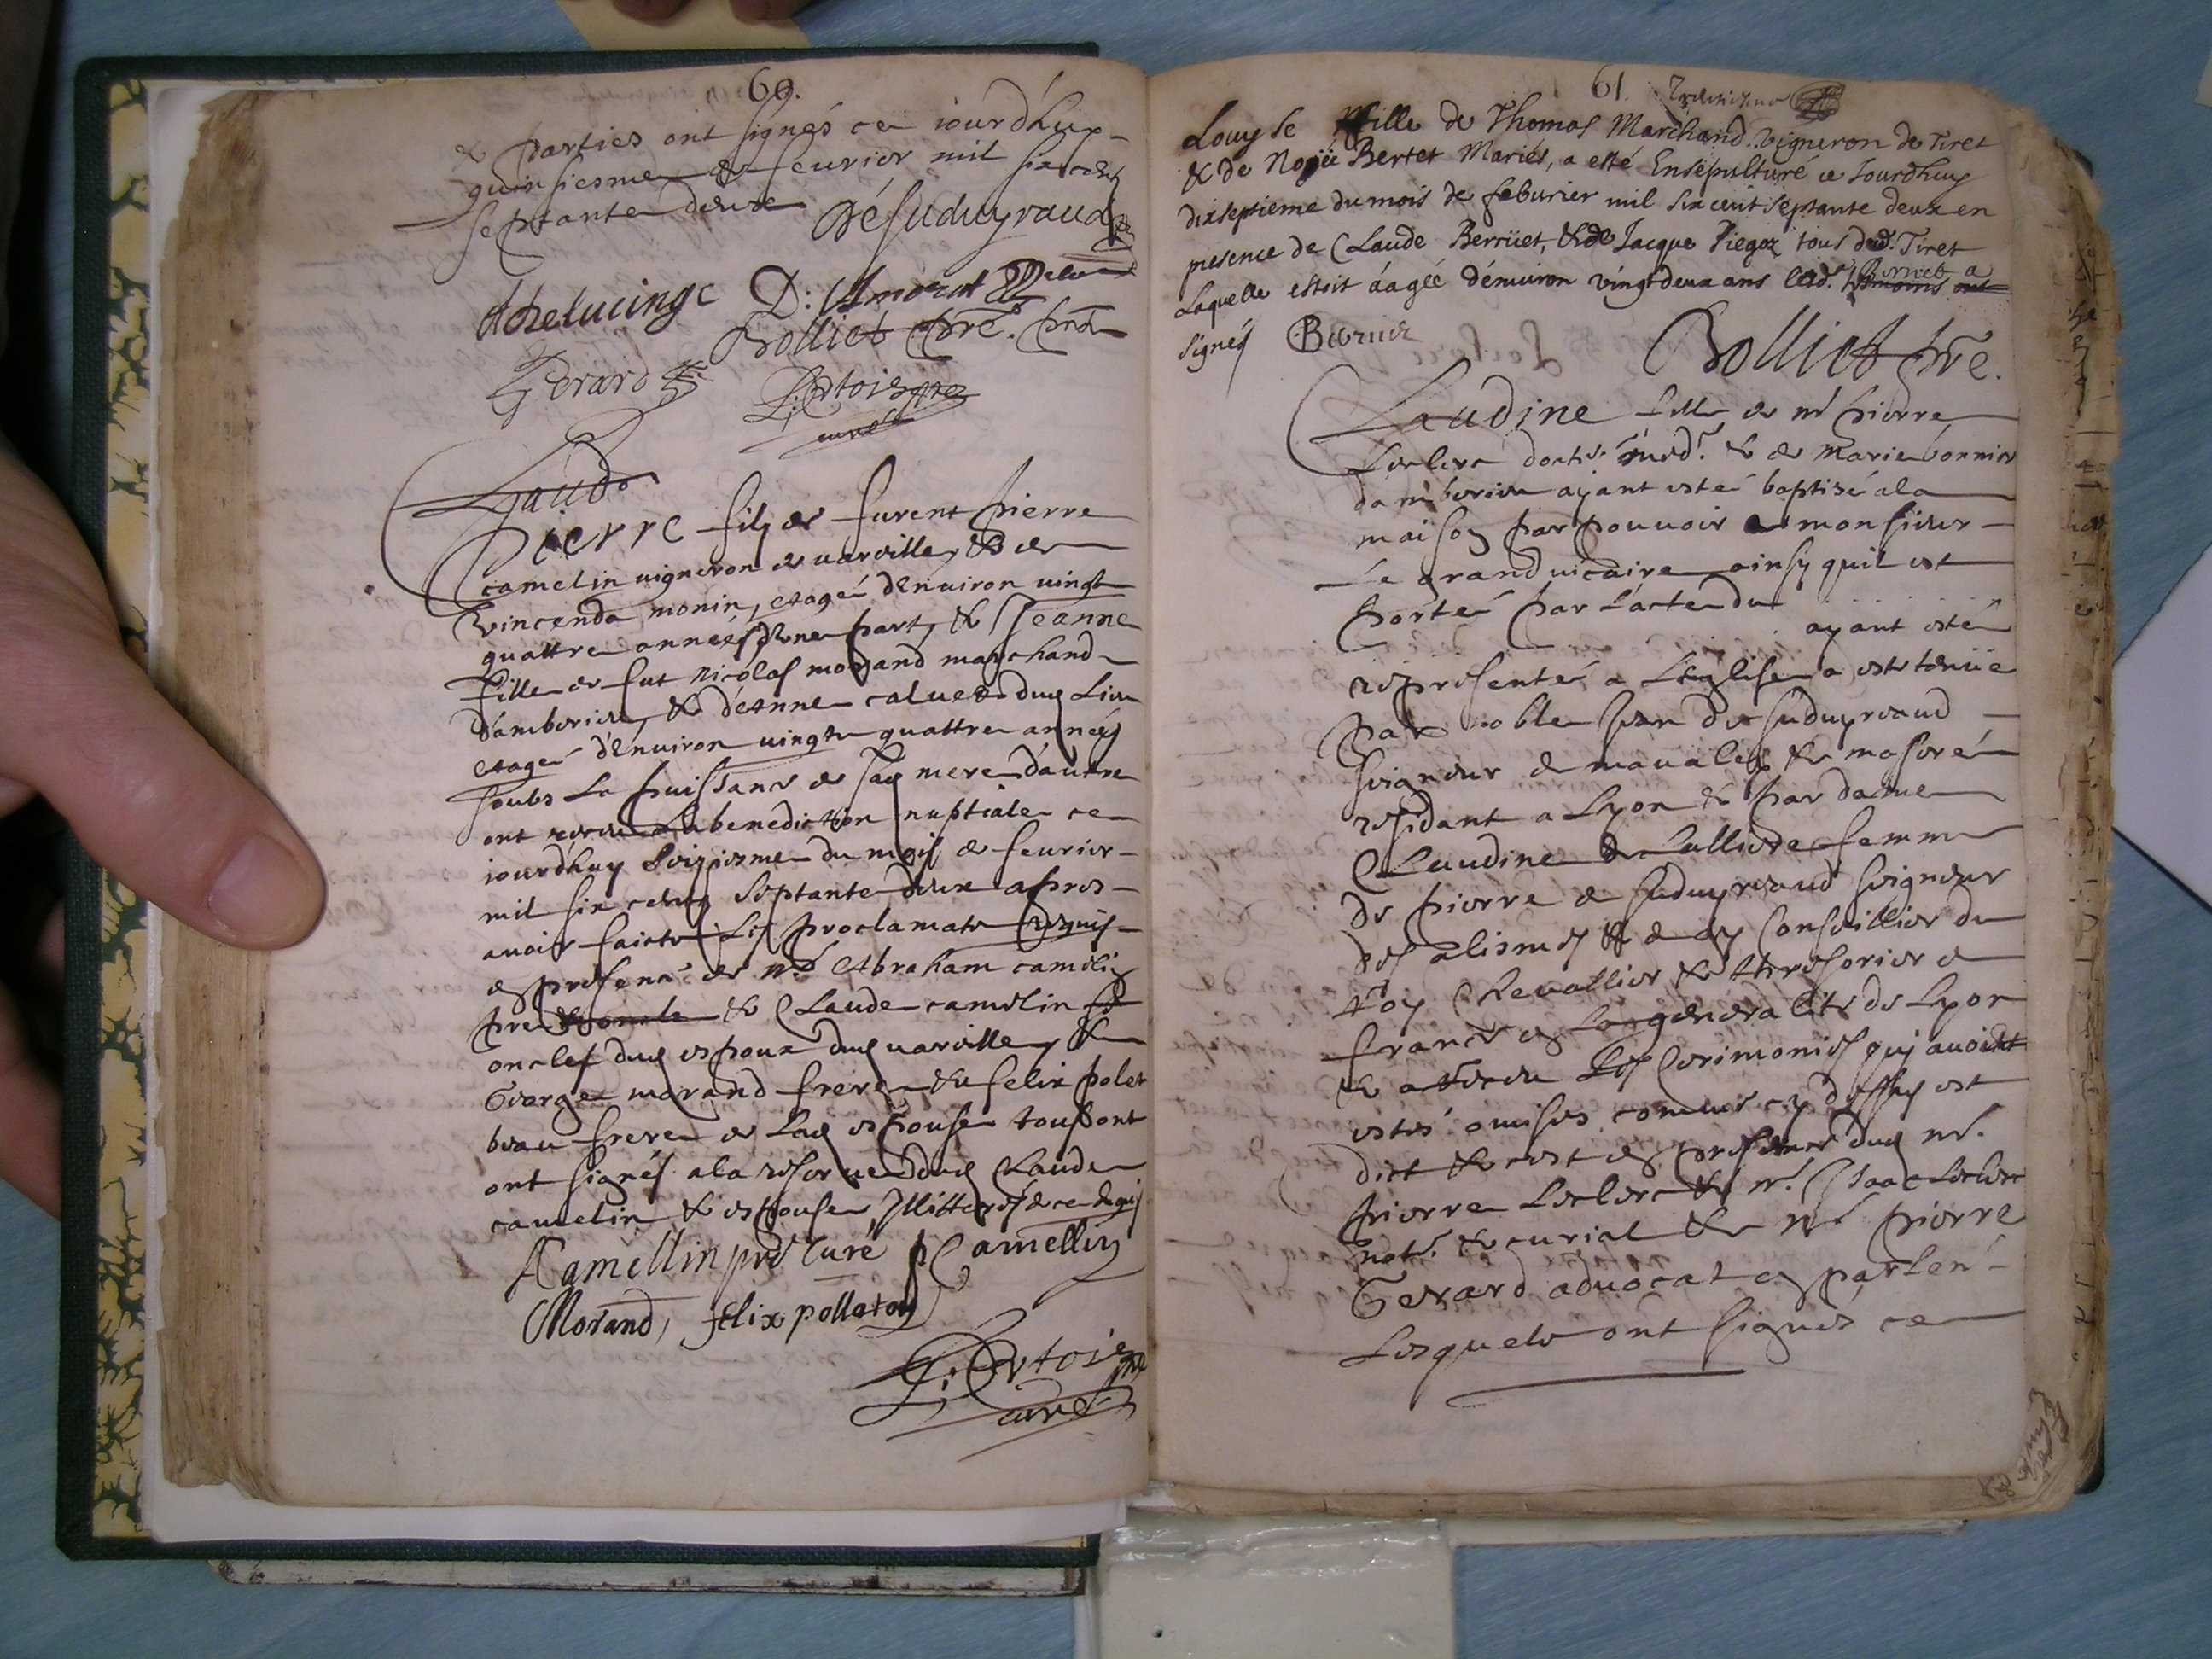 60.
& parties ont signés ce iourdhuy
quinsiesme de feurier mil six cent
septante deux Désuduyraud
Achelucingc D: Amorut
Bolliet pre. prnt
Gerard L: Artois
curé
Laude
Pierre fils de furent pierre
camelin uigneron de uaruille, & de
vincenda monin, etagé d'enuiron vingt
quattre années d'une part, & Jeanne
fille de fut Nicolas morand marchand
d'amberieu, & d'eAnne caluet dud Lieu
etagé d'enuiron uingt quattre années
soubs La puissance de sad mere d'autre
ont receu La benediction nuptiale ce
iourdhuy seiziesme du mois de feurier
mil six cents septante deux apres
auoir faicte Les proclamats requis
en presence de mr Abraham camelin
pre & Claude camelin
oncles dud espoux dud uaruille, &
George morand frere & felix polet
beau frere de Lad espouse tous ont
ont signés a la reserue dud Claude
camelin & espouse Illitteres de ce enquis
ACamellin prb Curé pCamellin
Morand, felix polleton
L: Artois pre
curé
61.
Louyse fille de Thomas Marchand vigneron de Tiret
& de Noyëe Bertet Mariés, a esté Ensepulturé ce Jourdhuy
dixseptieme du mois de feburier mil six cent septante deux en
presence de Claude Berruet, & de Jacque Piegoz tous dud. Tiret
Laquelle estoit áagéé d'enuiron vingt deux ans led. Berruet a
temoins ont
signés Berruer
Bolliet pre.
Claudine fille de mr pierre
Leclerc doctr. med. & de Marie bonnier
d'amberieu ayant esté baptisé a la
maison par pouuoir de monsieur
Le grand uicaire ainsy quil est
porté par L'acte du
ayant esté
representé a L'eglise a este tenüe
par noble Jean de suduyraud
seigneur de maualeys &
residant a Lyon & par dame
Claudine de Lalliere femme
de pierre de suduyraud seigneur
des alismes & de Conseillier du
roy Cheuallier & thresorier de
france en La generalité de Lyon
& a receu Les Cerimonies quj auoient
estés omises comme cy dessus est
dict & cest en presence dud mr.
pierre Leclerc & mr. Isaac Leclerc
notr. & curial & mr pierre
Gerard aduocat en parlent
Lesquels ont signés ce